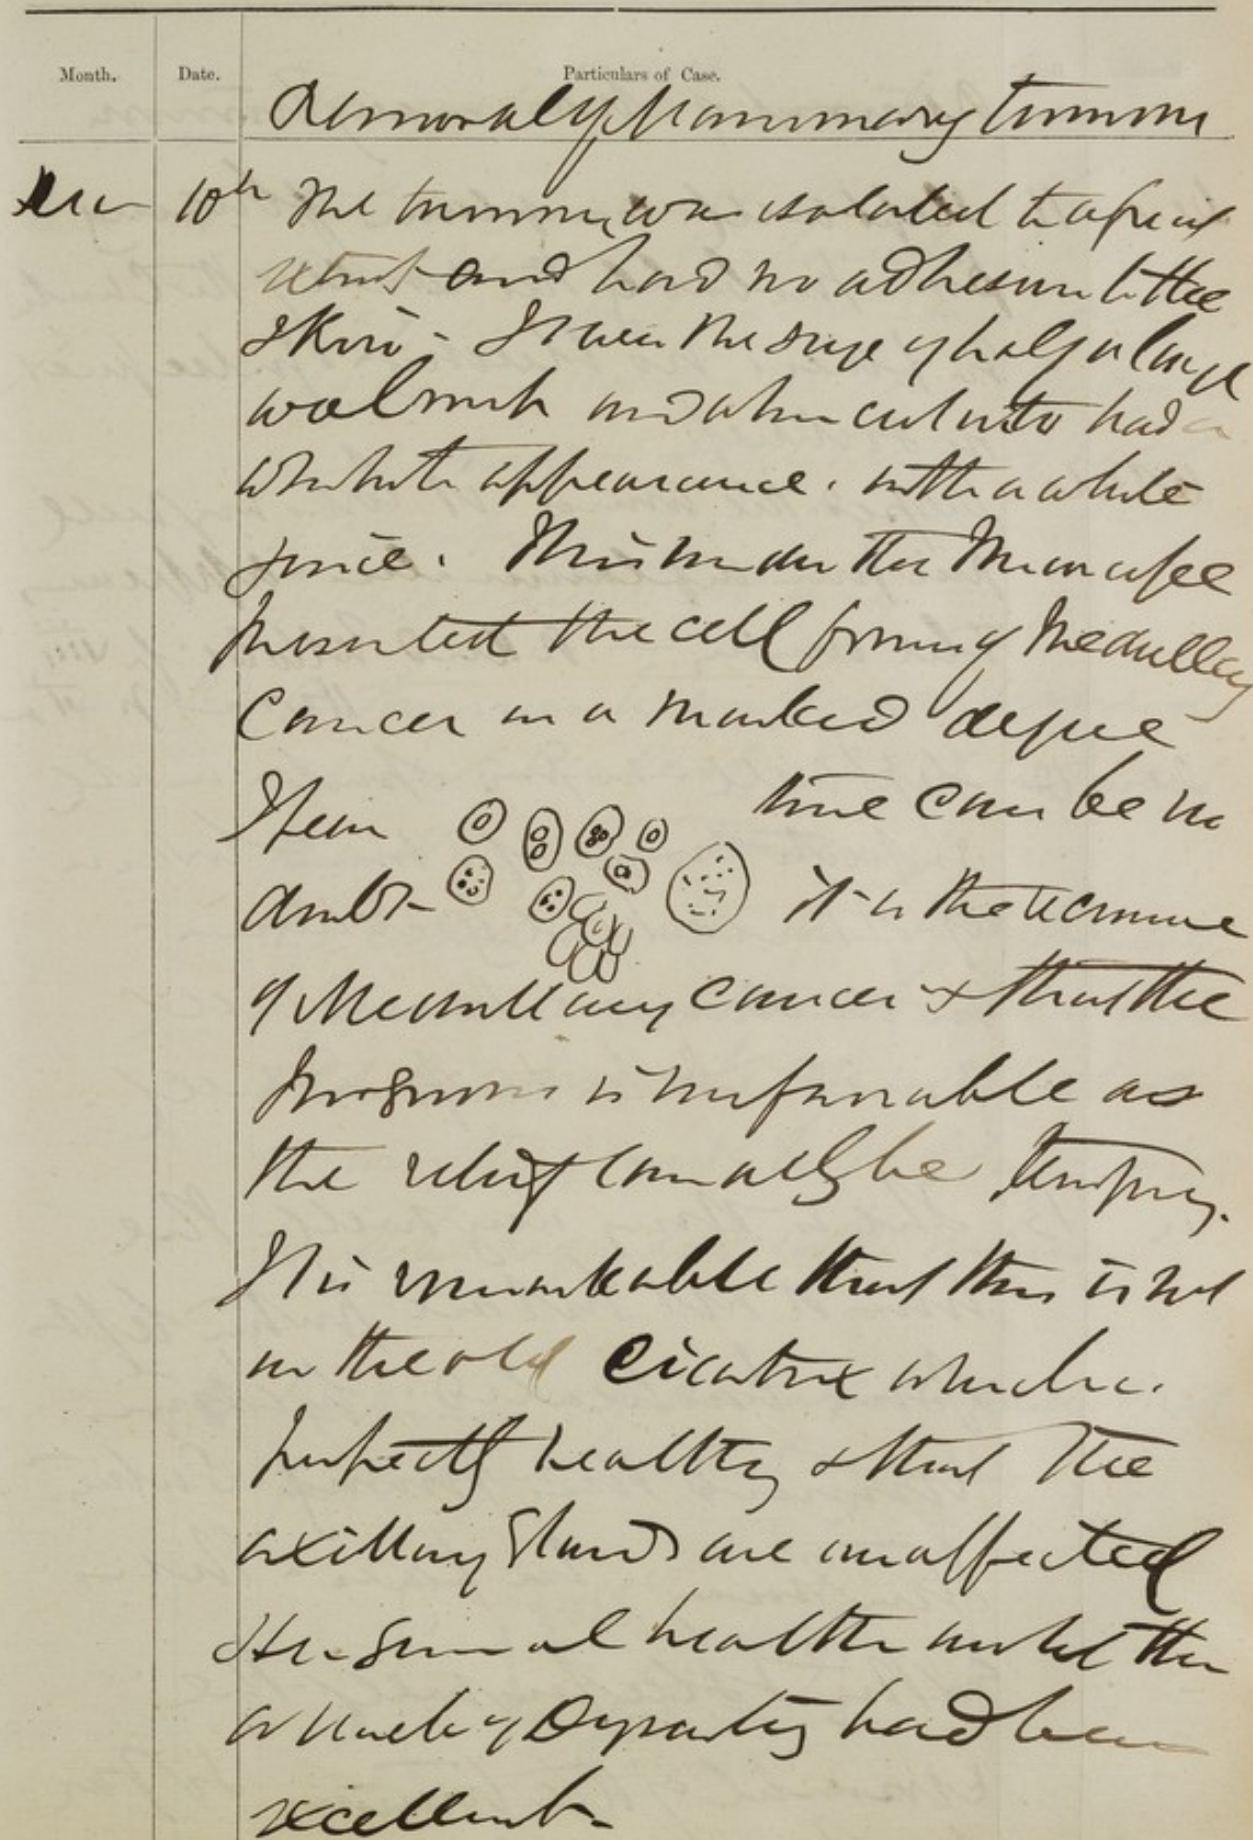 Month. Date. Particulars of Case.
Removal of Mammary Tumour
Dec 10th The tumour was isolated to a great
extent and had no adhesion to the
skin - It was the size of half a large
walnut and when cut into had a
whitish appearance. with a white
juice. This under the Microscope
presented the cell forms of Medullary
Cancer in a marked degree
I fear there can be no
doubt it is the recurrence
of Medullary cancer & that the
prognosis is unfavorable as
the relief can only be temporary.
It is remarkable that this is not
in the old cicatrix which is
perfectly healthy & that the
axillary glands are unaffected
Her general health until this
attack of Dysentery had been
excellent.